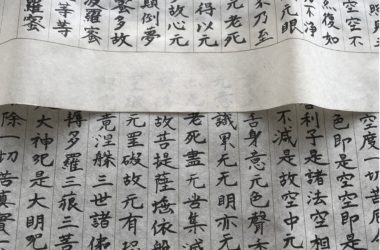 照見
空空不
復如
不淨
无眼
不乃至
无老死
得以无
故心无
顛倒夢
蜜多故
波羅蜜
等等
羅蜜
空度一切苦
色即是空空即是
利子是諸法空相
不減是故空中无
舌身意无色聲
識界无无明亦无
老死盡无苦集滅
故菩提薩埵依般
无罣礙故无有恐
竟涅槃三世諸佛
耨多羅三藐三菩
大神咒是大明咒
除一切苦真實